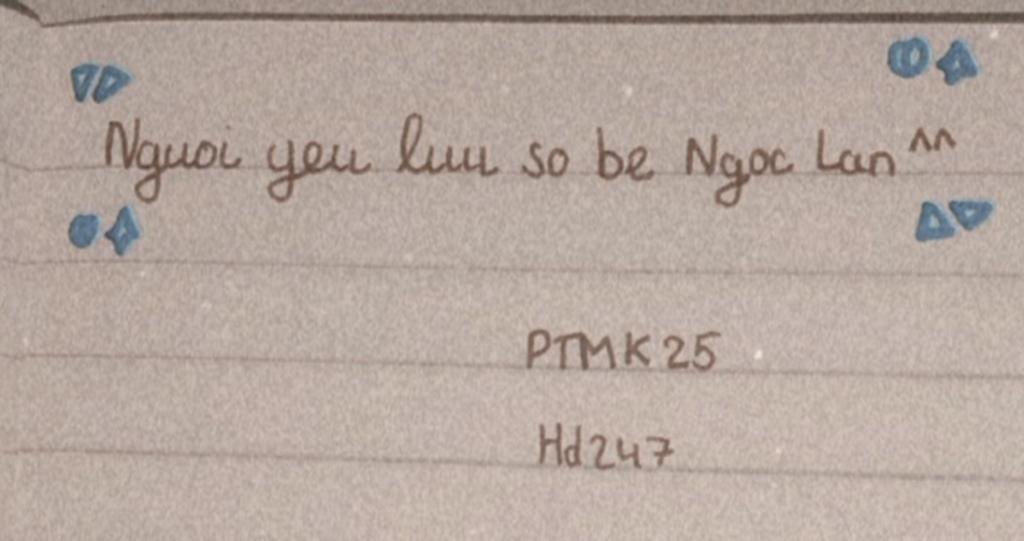 Nguoi yeu luu so be Ngoc Lan ^^
PTMK25
Hd247